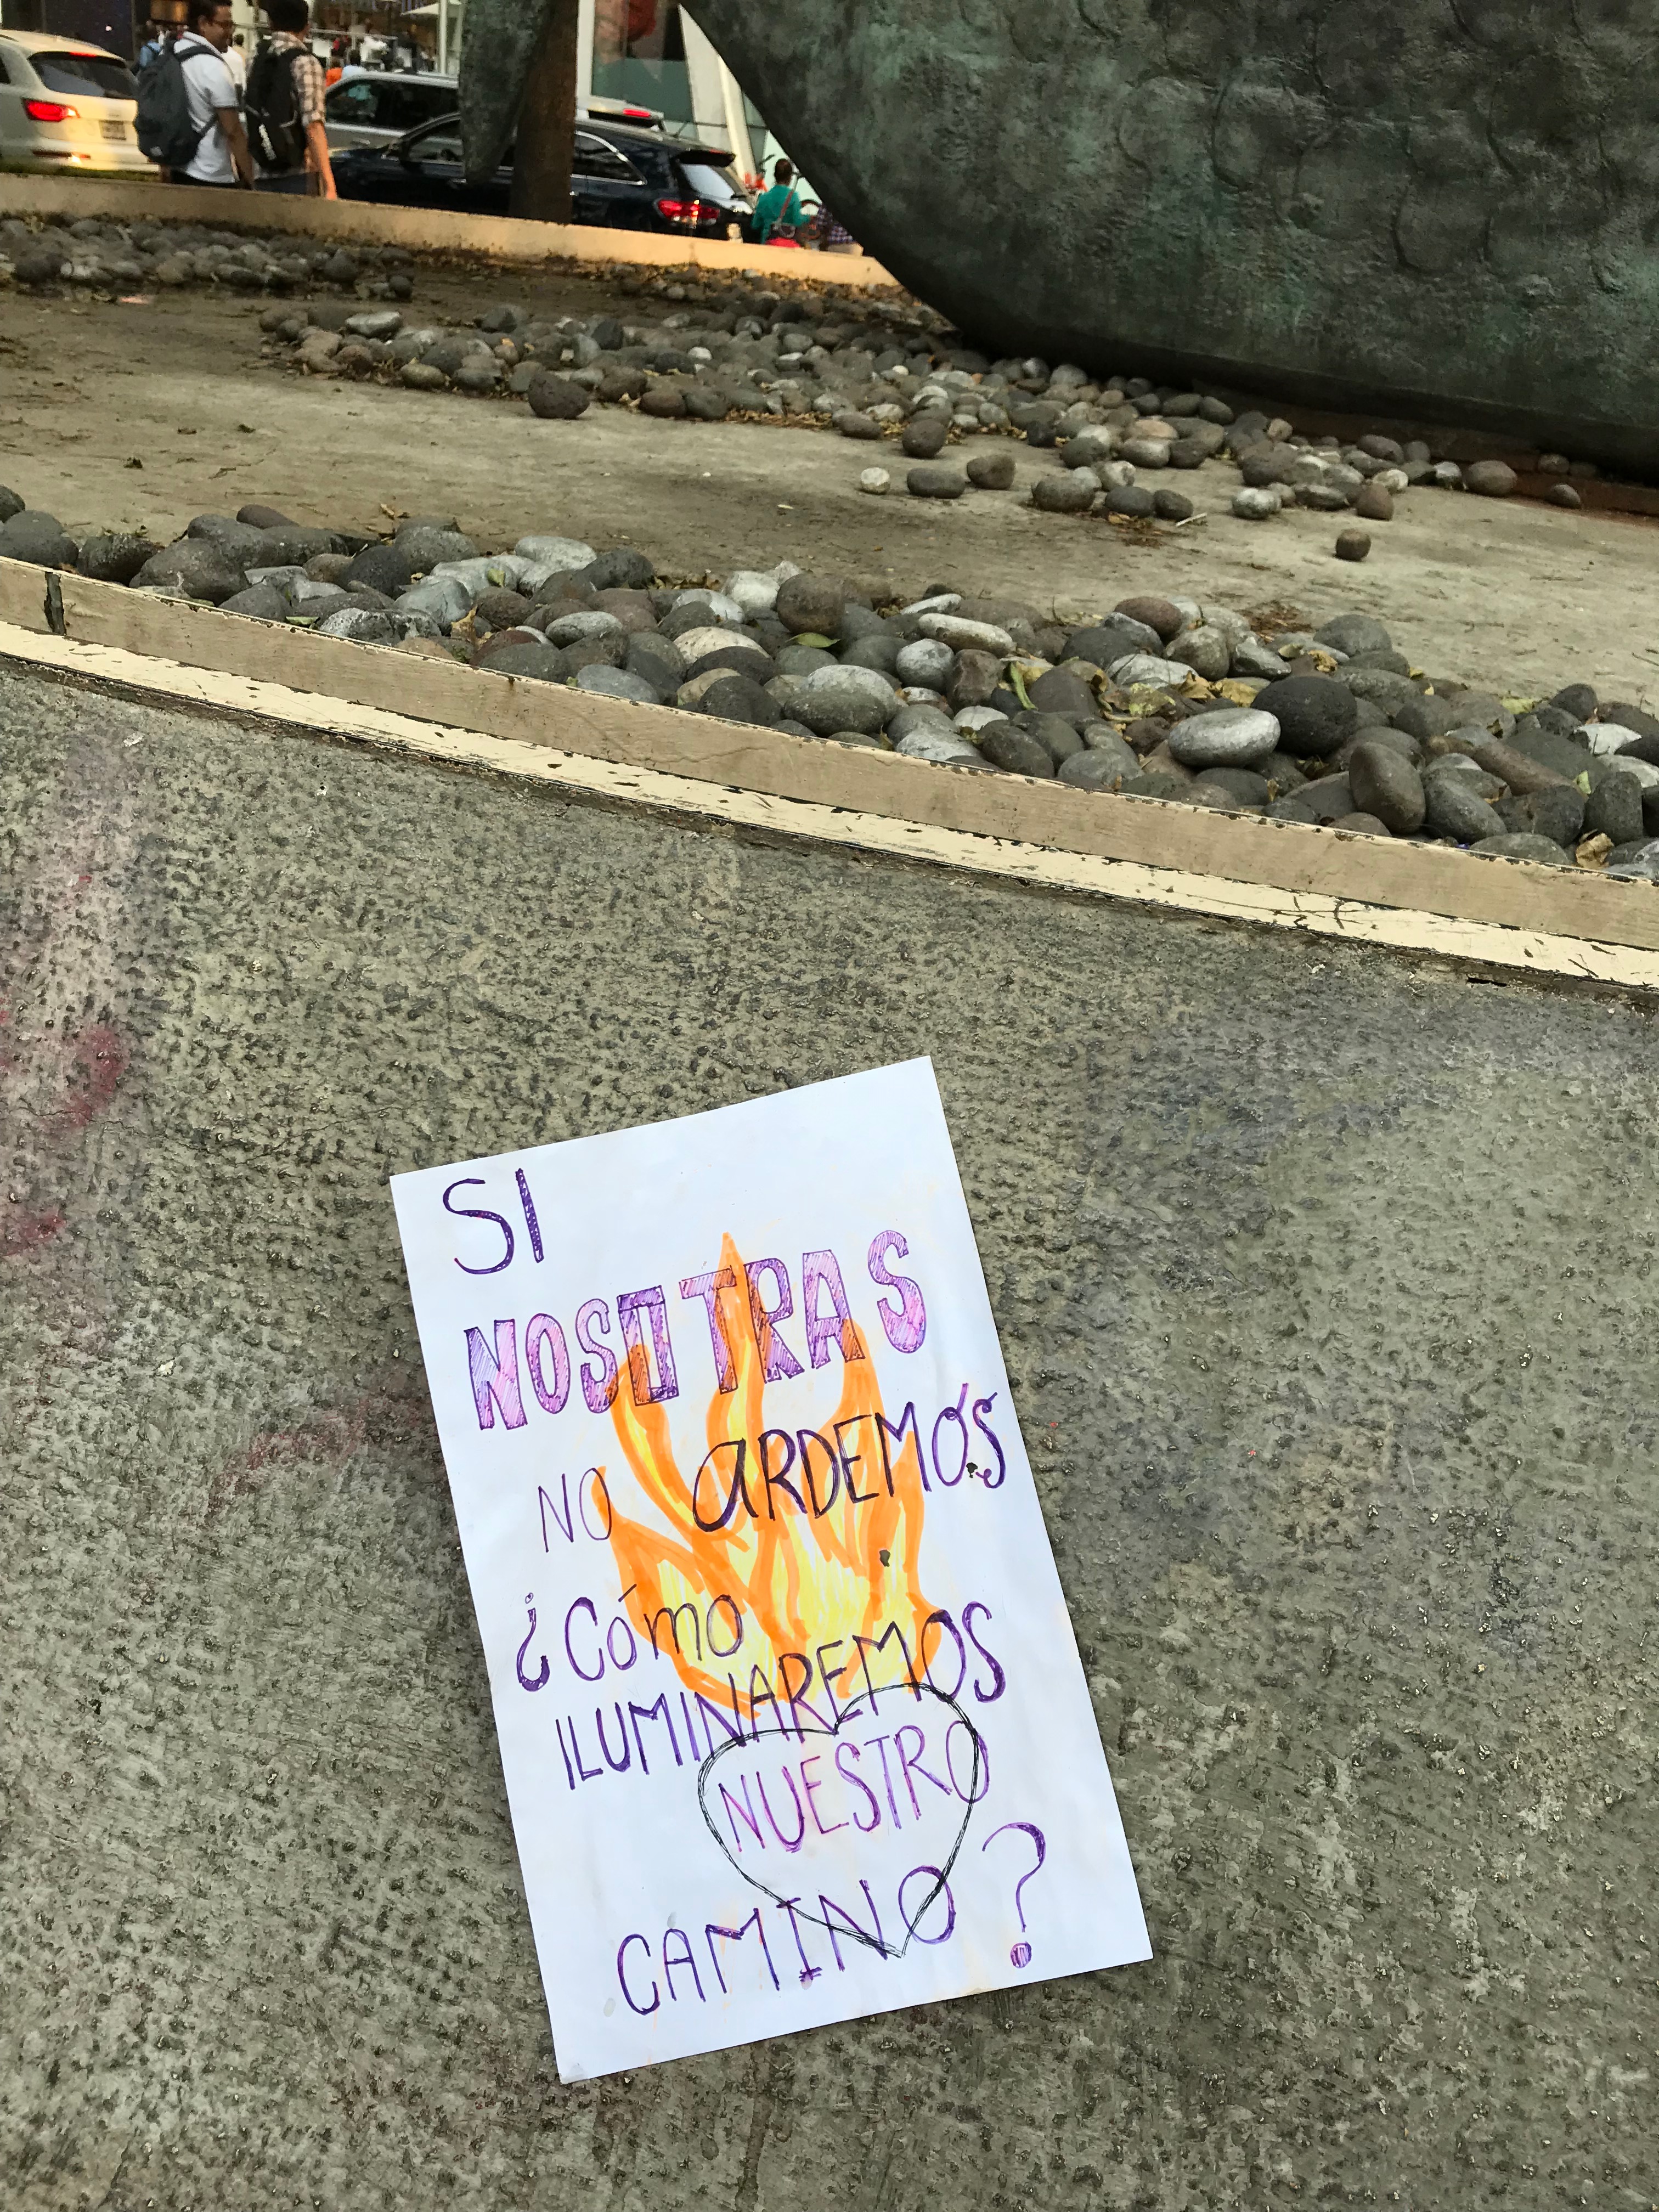 SI
NOSOTRAS
NO ARDEMOS
¿Cómo
ILUMINAREMOS
NUESTRO
CAMINO?